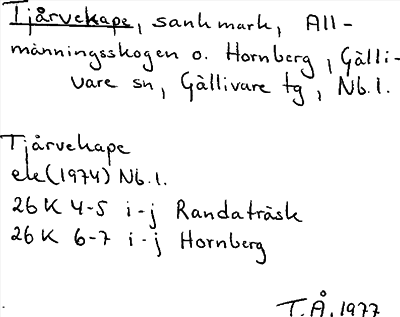 Tjårvekape, sank mark, All-
männingsskogen o. Hornberg, Gälli-
vare sn, Gällivare tg, Nb.l.
Tjårvekape
ek(1974) Nb.l.
26 K 4-5 i-j Randaträsk
26 K 6-7 i-j Hornberg
T.Å. 1977